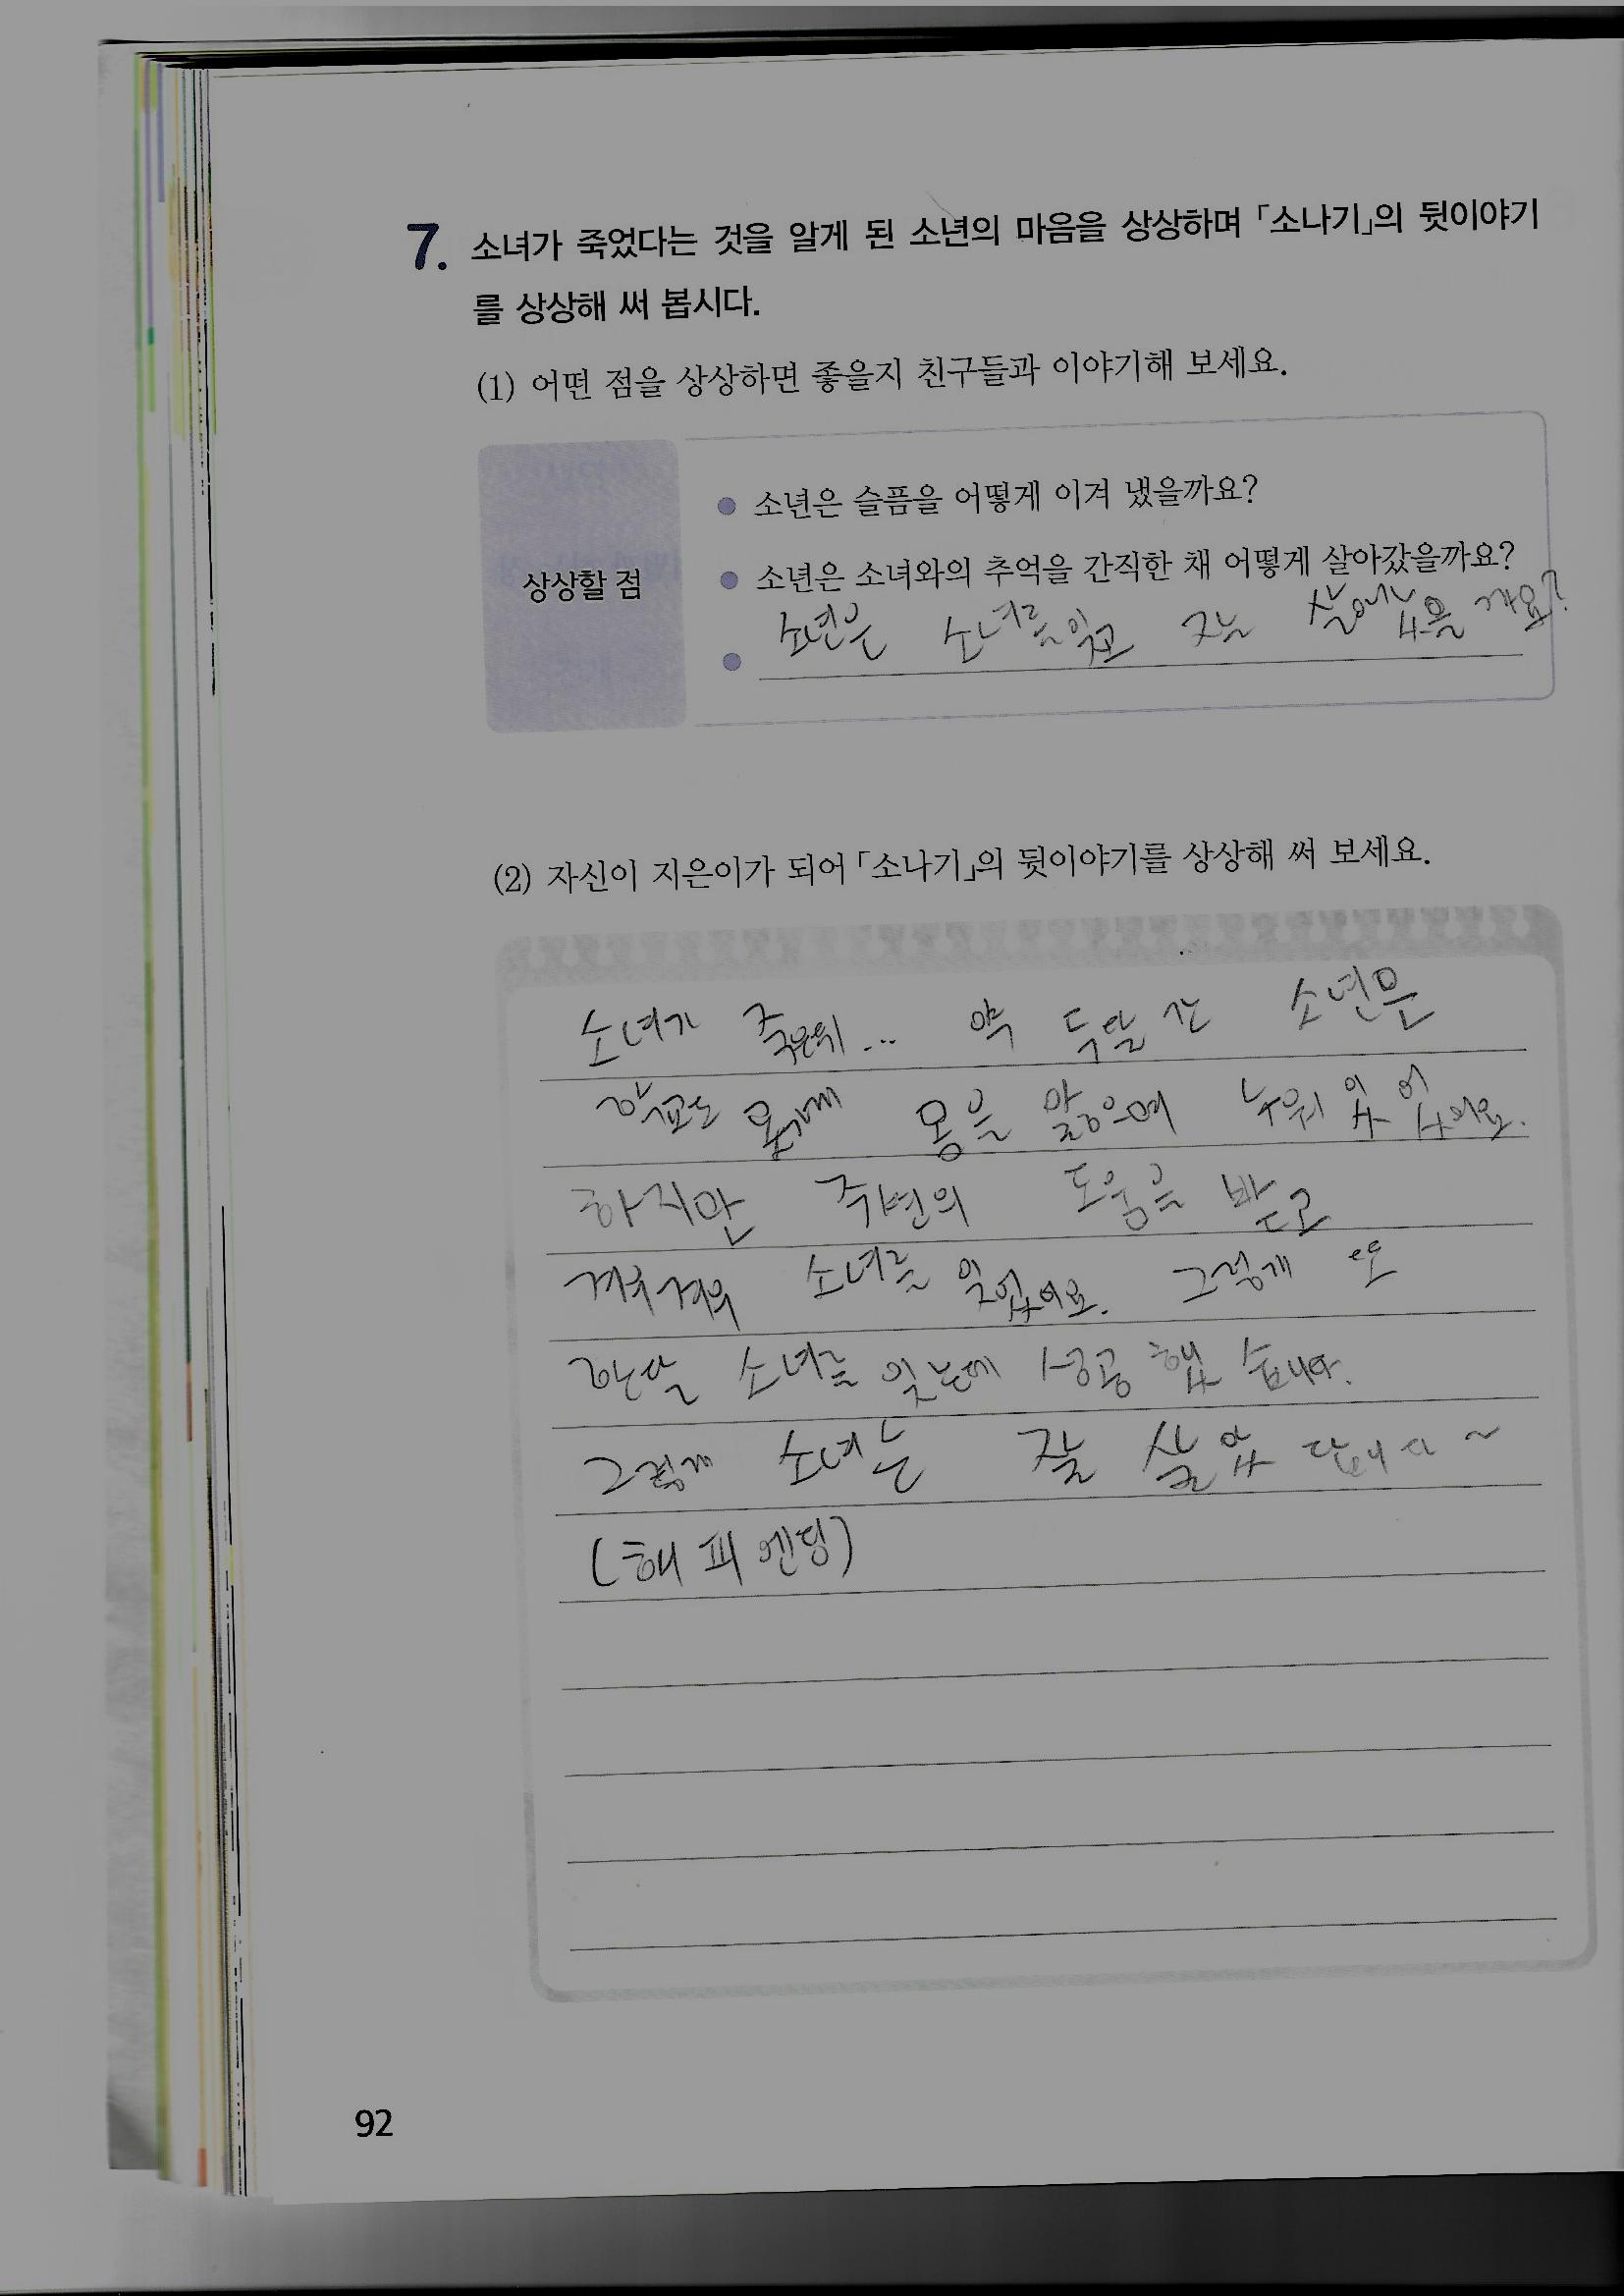 7. 소녀가 죽었다는 것을 알게 된 소년의 마음을 상상하며 「소나기」의 뒷이야기
를 상상해 써 봅시다.
(1) 어떤 점을 상상하면 좋을지 친구들과 이야기해 보세요.
상상할 점
● 소년은 슬픔을 어떻게 이겨 냈을까요?
● 소년은 소녀와의 추억을 간직한 채 어떻게 살아갔을까요?
● 소년은 소녀를 잊고 살
(2) 자신이 지은이가 되어 「소나기」의 뒷이야기를 상상해 써 보세요.
소녀가 죽은뒤... 약 두달간 소년은
학교도 못가며 몸을 앓으며 누워 있었어요.
하지만 주변의 도움을 받고
겨우겨우 소녀를 잊었어요. 그렇게 또
한달 소녀를 잊는데 성공 했습니다.
그렇게 소녀는 잘 살았답니다~
(해피엔딩)
92